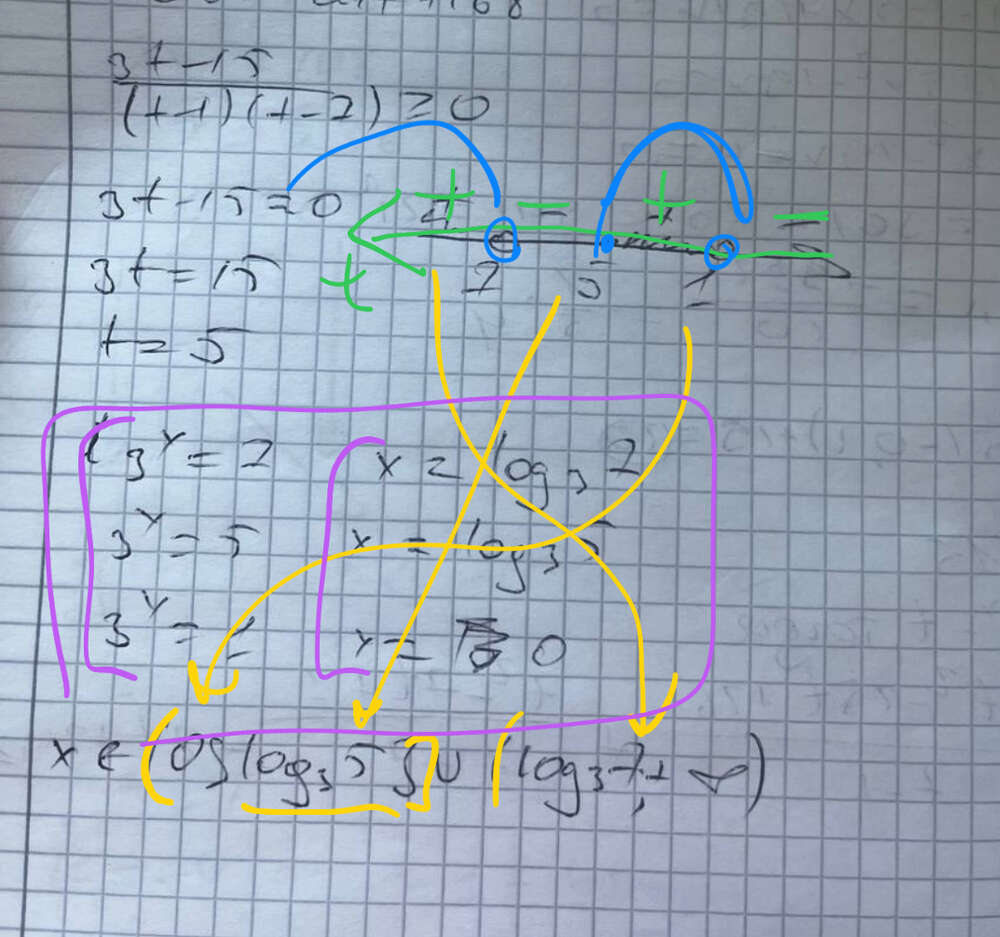 3t-15
(t-1)(t-7) ≥ 0
3t-15=0
+ - + -
3t=15
+
7 5 1
t=5
3^x = 7 x = log₃ 7
3^x = 5 x = log₃ 5
3^x = 1 x = 0
x ∈ (0; log₃ 5] ∪ (log₃ 7; +∞)